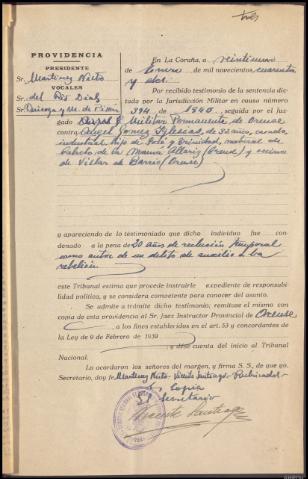 PROVIDENCIA
PRESIDENTE
Sr. Martinez Nieto
VOCALES
Sr. del Rio Diaz
Sr.
En La Coruña, a veintiuno
de Enero de mil novecientos cuarenta
y dos.
Por recibido testimonio de la sentencia dic-
tada por la Jurisdicción Militar en causa número
394 de 1940, seguida por el Juz-
gado Militar Permanente de Orense
contra Angel Gomez Iglesias, de 32 años, casado
industrial, hijo de José y Trinidad, natural de
de la Allariz (Orense) y vecino
de Villar de Barrio (Orense)
y apareciendo de lo testimoniado que dicho individuo fue con-
denado a la pena de 20 años de reclusión temporal
como autor de un delito de auxilio a la
rebelión
este Tribunal estima que procede instruirle expediente de responsabi-
lidad política, y se considera competente para conocer del asunto.
Se admite a trámite dicho testimonio, remítase el mismo con
copia de esta providencia al Sr. Juez Instructor Provincial de Orense
a los fines establecidos en el art. 53 y concordantes de
la Ley de 9 de Febrero de 1939
y dese cuenta del inicio al Tribunal
Nacional.
Lo acordaron los señores del margen, y firma S. S. de que yo,
Secretario, doy fe Martinez Nieto - Vicente Santiago - Rubricados -
Es copia
El Secretario
Vicente Santiago